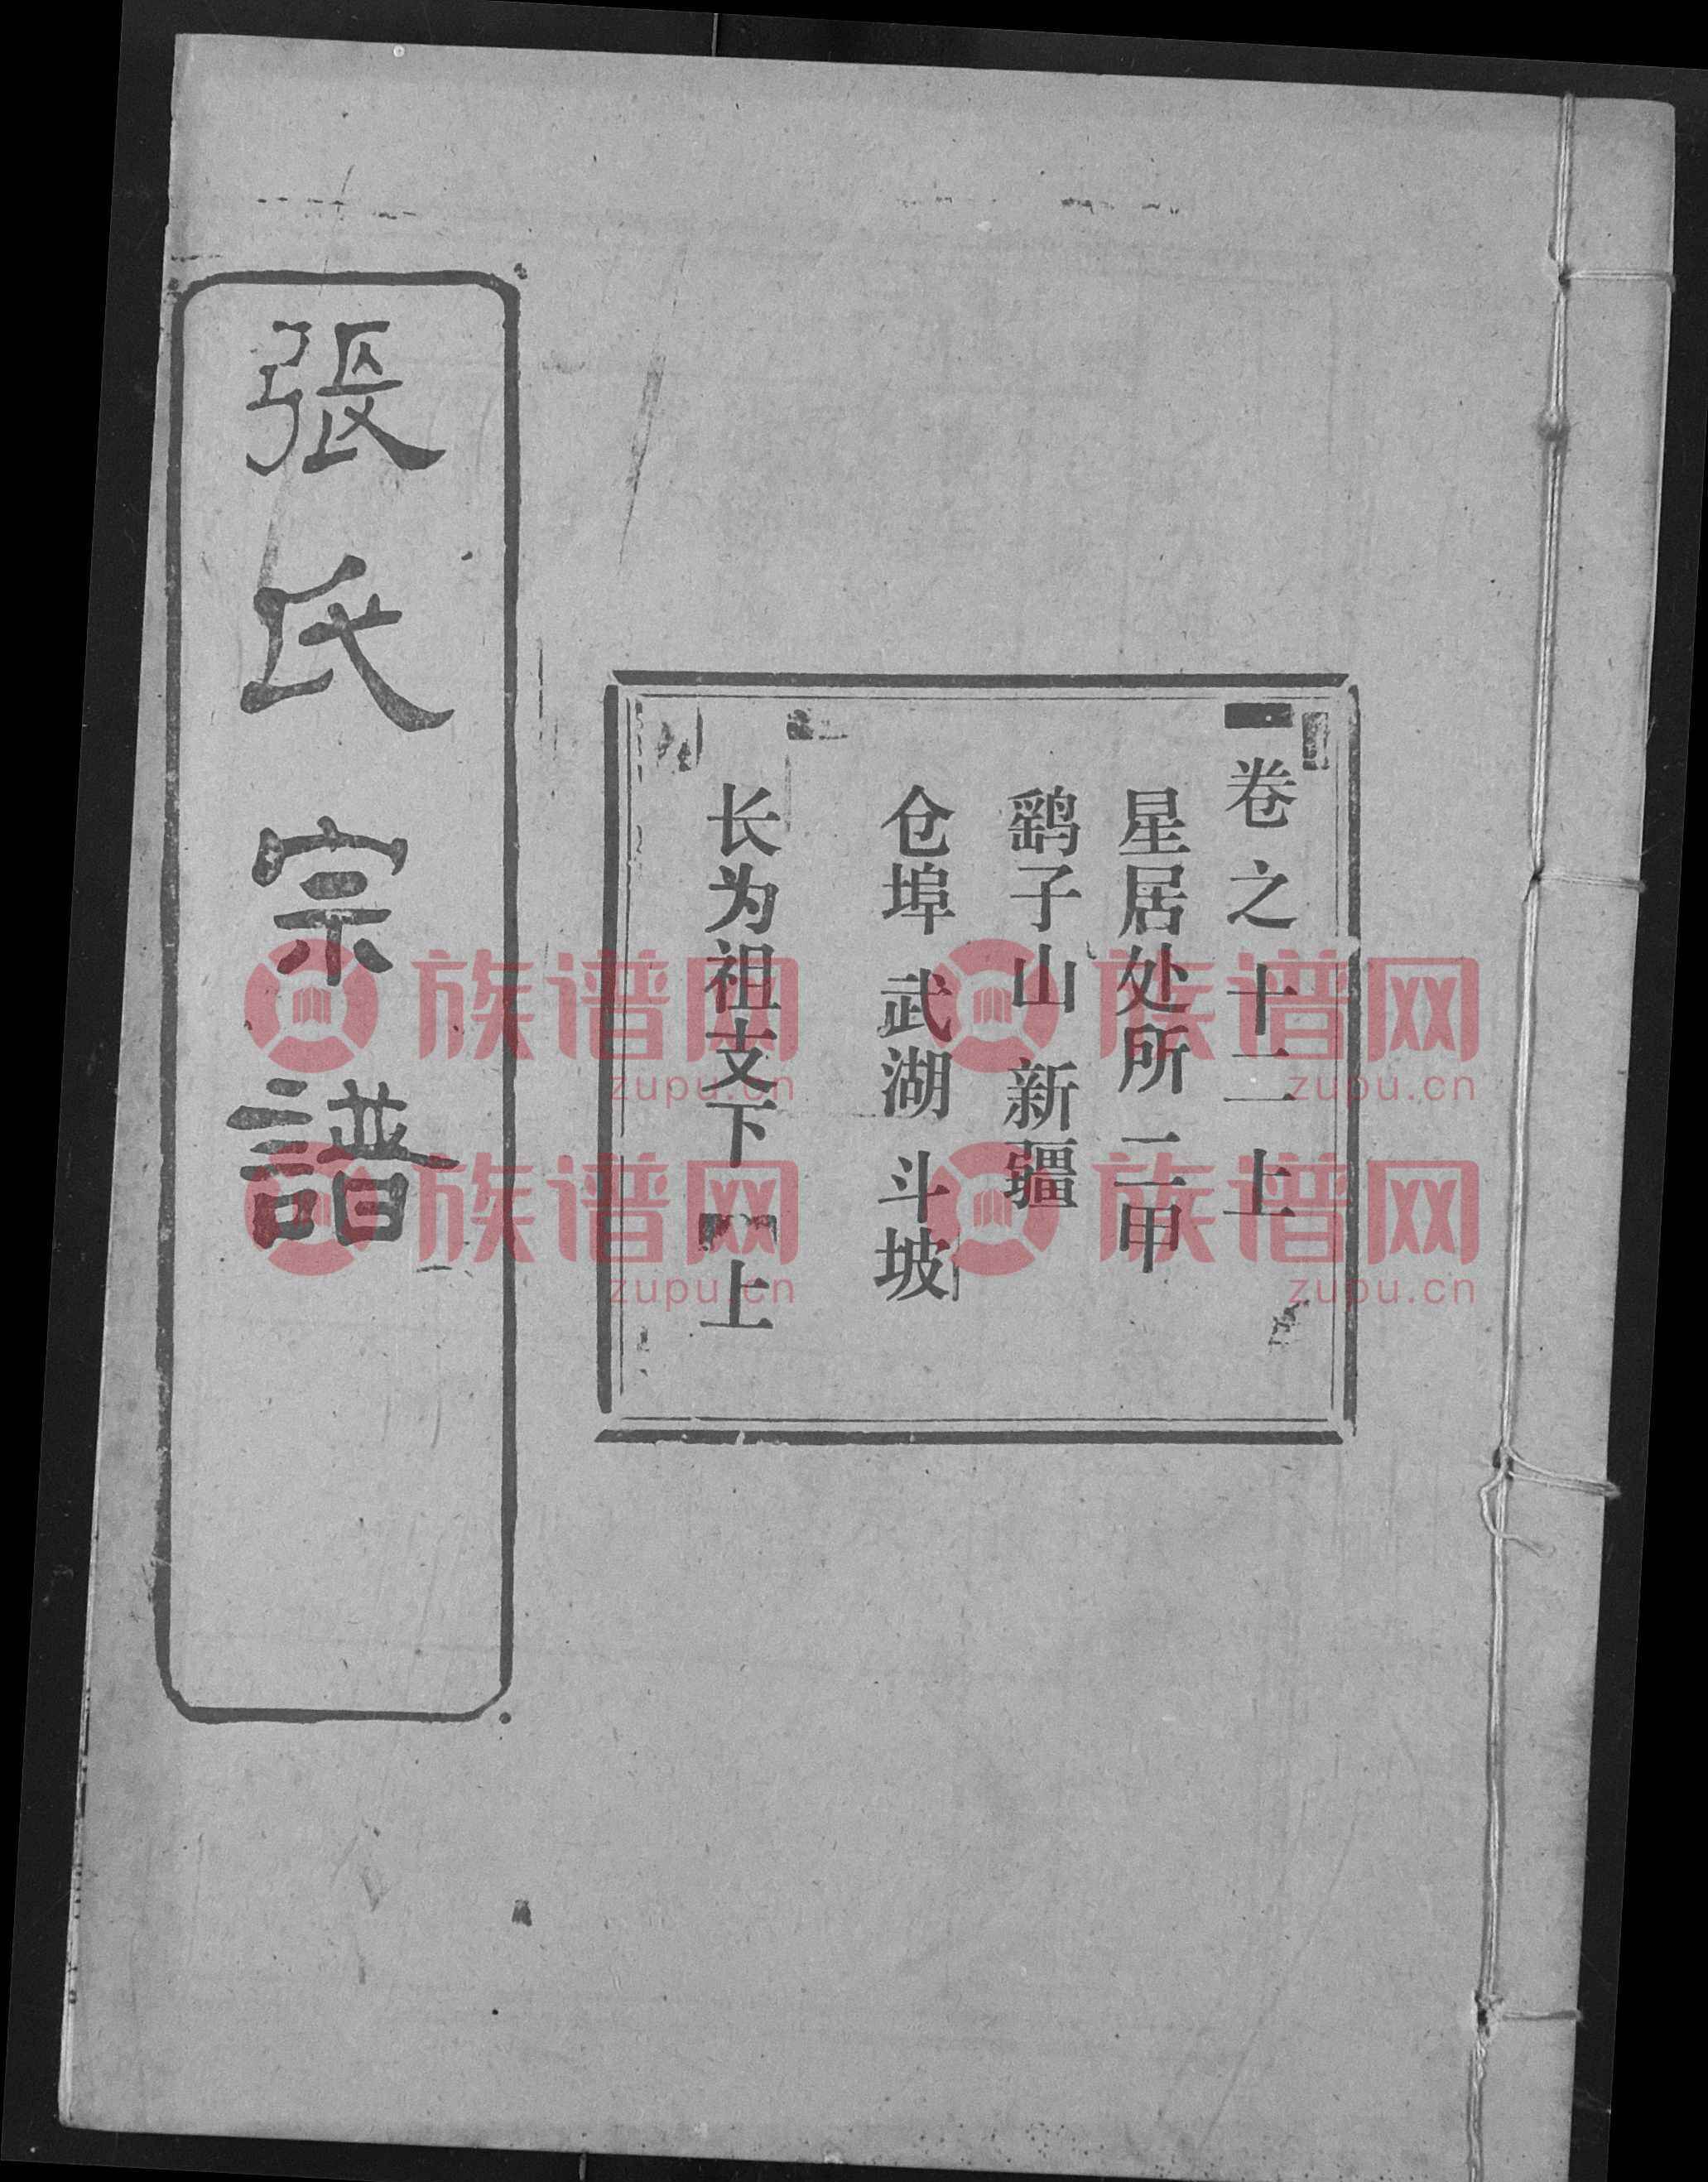 卷之十二上
星居处所 二甲
鹞子山 新疆
仓埠 武湖 斗坡
长为祖支下 上
張氏宗譜
族谱网 族谱网
zupu.cn zupu.cn
族谱网 族谱网
zupu.cn zupu.cn